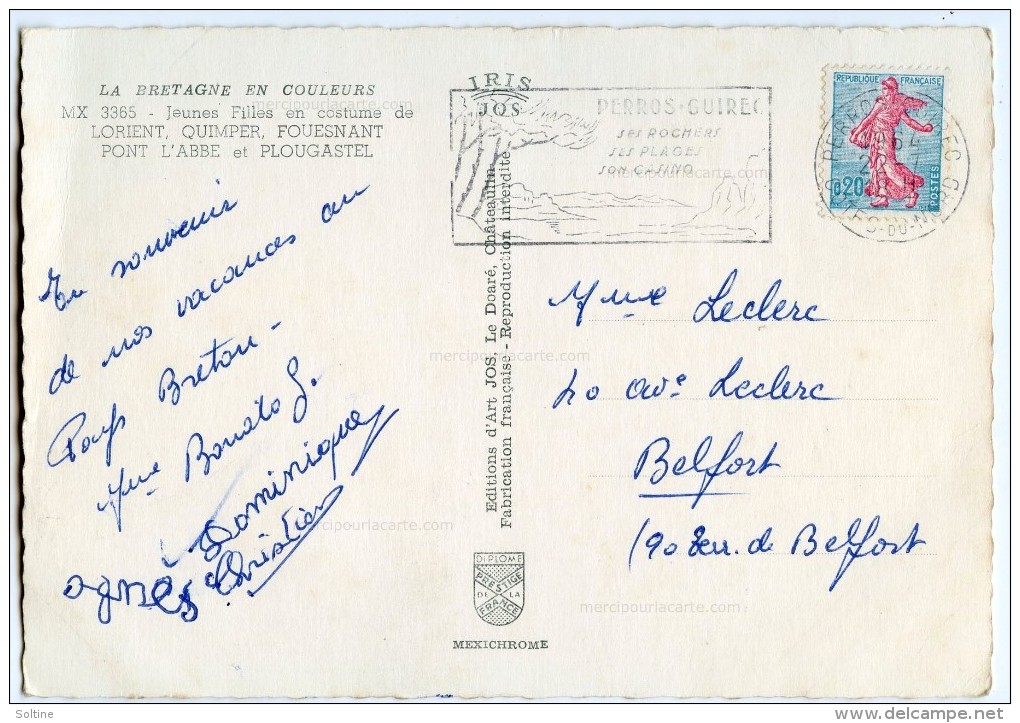 LA BRETAGNE EN COULEURS
MX 3365 - Jeunes Filles en costume de
LORIENT, QUIMPER, FOUESNANT
PONT L'ABBE et PLOUGASTEL
En souvenir
de nos vacances au
Pays Breton -
Mme Bonato G.
Dominique
Christian
agnès
IRIS
JOS
Editions d'Art JOS, Le Doaré, Châteaulin
Fabrication française - Reproduction interdite
DIPLOME
PRESTIGE
DE LA
FRANCE
MEXICHROME
PERROS-GUIREC
SES ROCHERS
SES PLAGES
SON CASINO
REPUBLIQUE FRANÇAISE
0,20
POSTES
PERROS-GUIREC
CÔTES-DU-NORD
Mme Leclerc
20 ave Leclerc
Belfort
(90 Terr. de Belfort
mercipourlacarte.com
mercipourlacarte.com
mercipourlacarte.com
mercipourlacarte.com
mercipourlacarte.com
Soltine
delcampe.net